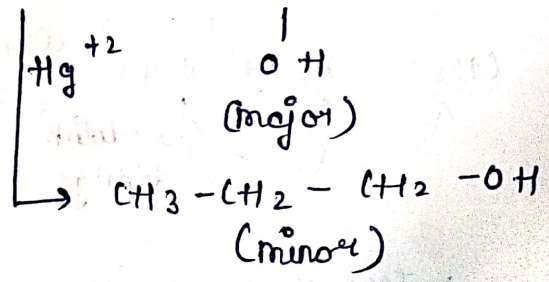 Hg +2
OH
(major)
CH3 - CH2 - CH2 - OH
(minor)